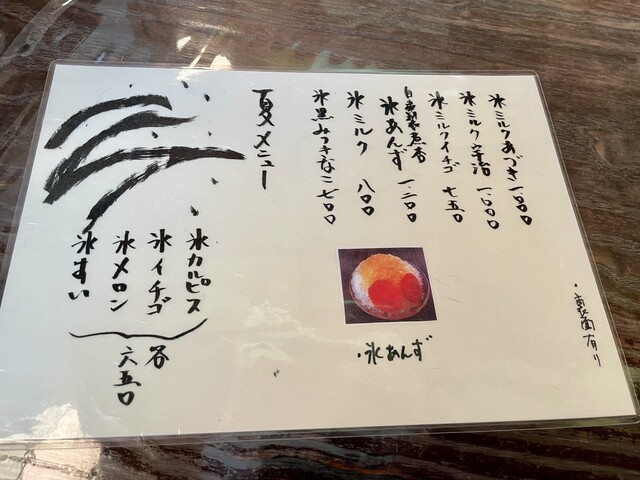 ・裏面有り
氷ミルクあづき 一.〇〇〇
氷ミルク宇治 一.〇〇〇
氷ミルクイチゴ 七五〇
自家製水煮杏
氷あんず 一.二〇〇
氷ミルク 八〇〇
氷黒みつきなこ 七〇〇
・氷あんず
夏メニュー
氷カルピス
氷イチゴ
氷メロン
氷すい
各
六五〇